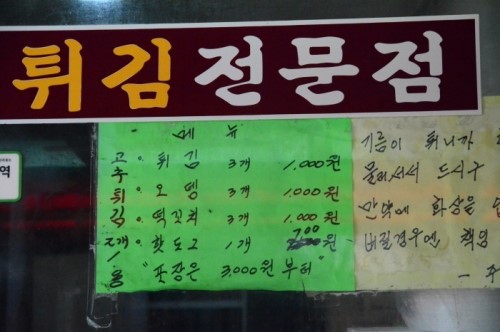 튀김전문점
메 뉴
고 · 튀김 3개 1,000원
추
튀 · 오뎅 3개 1,000원
김 · 떡꼬치 3개 1,000원
개 · 핫도그 1개 700원
"포장은 3,000원부터"
기름이 튀니까
물러서서 드시구
만약에 화상을
버릴경우엔 책임
역